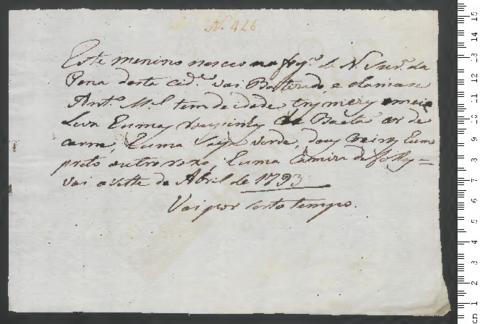 Nº 426
Este menino nasceo na fregª. de N. Senrª. da
Pena desta cidᵉ. vai Bautizado e chamase
Antº. Mel. tem de idade tres mezes e meio
Leva huma de Baeta cor de
huma Saya verde, dous hum
preto outro roxo, huma Camiza de
vai a sette de Abril de 1793
Vai por ser tempo.